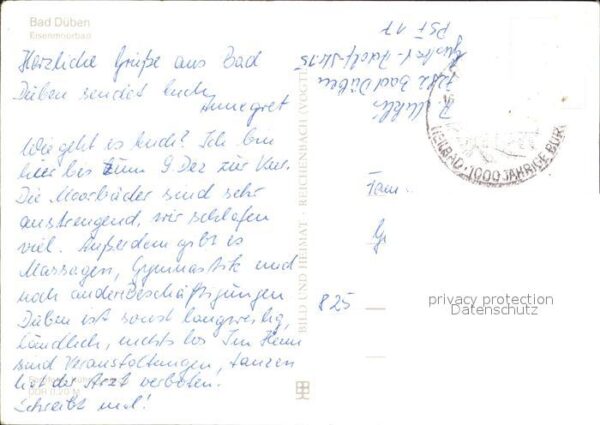 Bad Düben
Eisenmoorbad
Herzliche Grüße aus Bad
Düben sendet Euch
Annegret
Wie geht es Euch? Ich bin
hier bis zum 9. Dez zur Kur.
Die Moorbäder sind sehr
anstrengend, wir schlafen
viel. Außerdem gibt es
Massagen, Gymnastik und
noch andere Beschäftigungen
Düben ist sonst langweilig,
ländlich, nichts los Im Heim
sind Veranstaltungen, tanzen
hat der Arzt verboten.
Schreibt mal!
BILD UND HEIMAT · REICHENBACH (VOGTL
7282 Bad Düben
Gustav-Adolf-Str. 15
PSF 17
HEILBAD · 1000 JÄHRIGE BUR
Fam.
825
privacy protection
Datenschutz